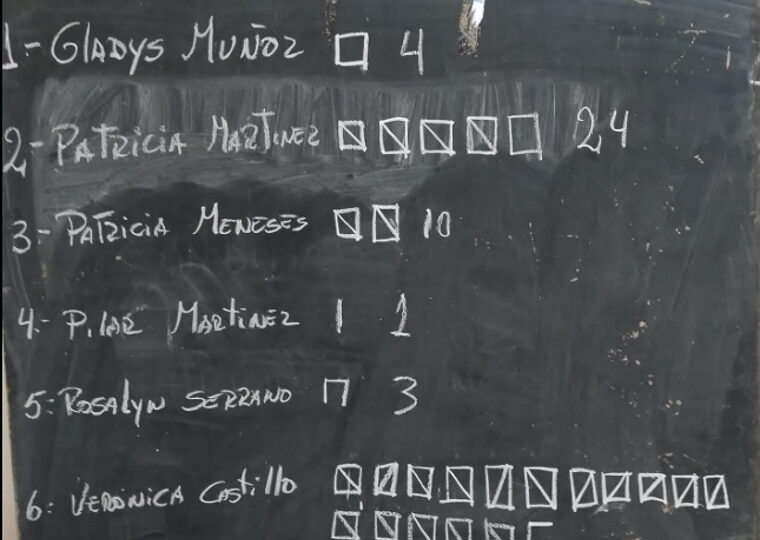 1-GLADYS MUÑOZ 4
2-PATRICIA MARTINEZ 24
3-PATRICIA MENESES 10
4-PILAR MARTINEZ 1
5:ROSALYN SERRANO 3
6: VERONICA CASTILLO